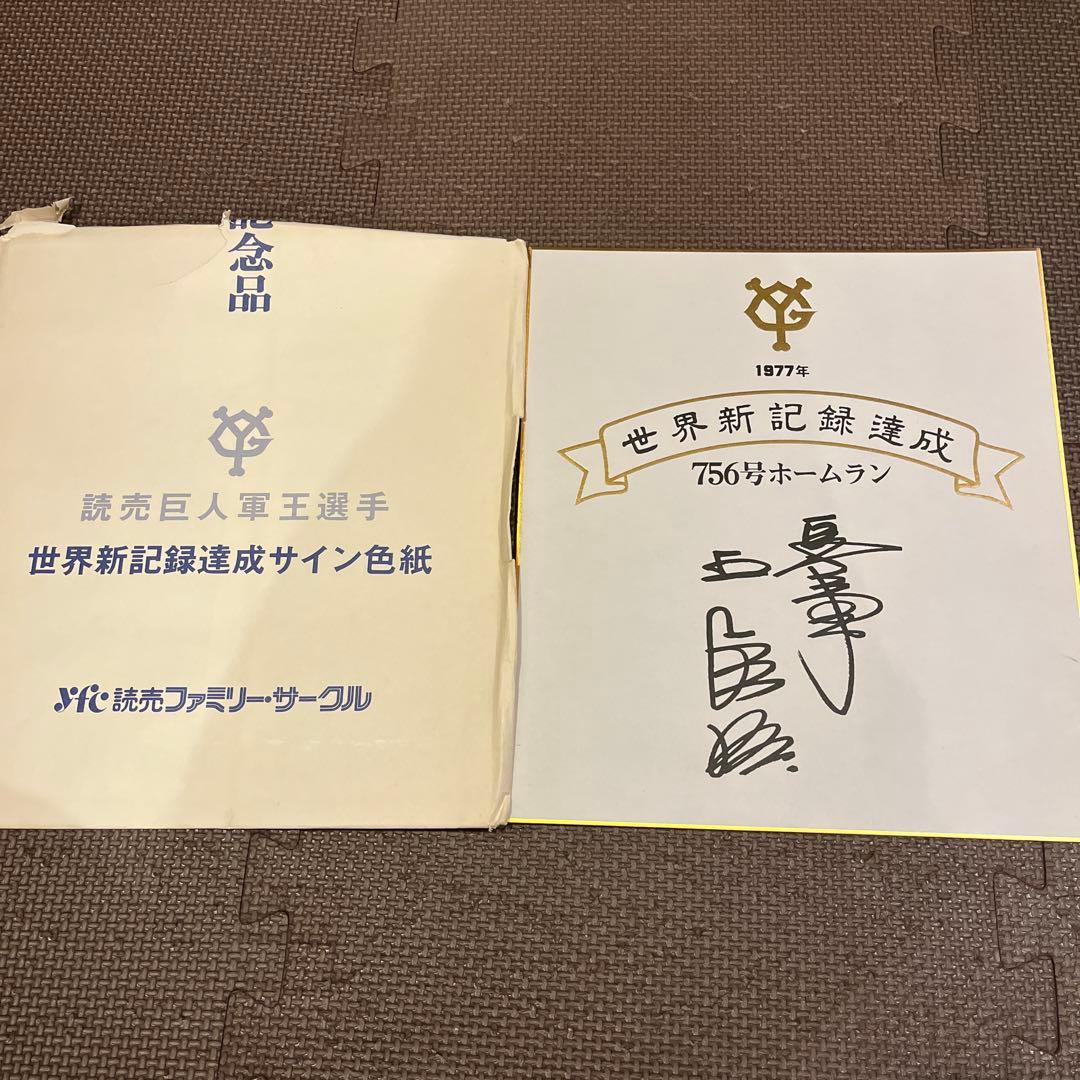 記念品
読売巨人軍王選手
世界新記録達成サイン色紙
yfc読売ファミリー・サークル
1977年
世界新記録達成
756号ホームラン
巨人軍
王貞治